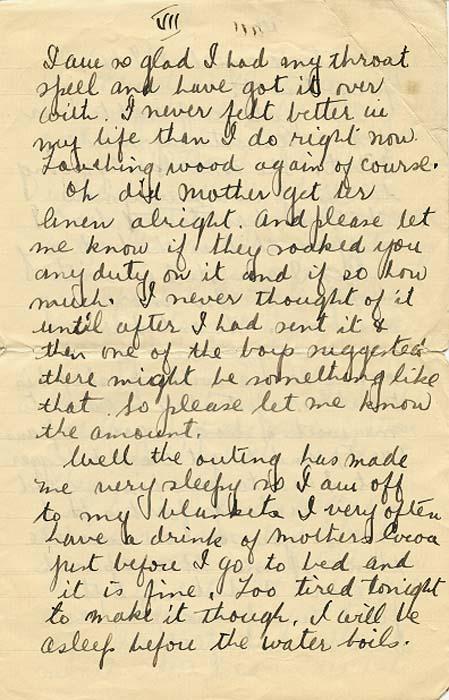 VII
I am so glad I had my throat
spell and have got it over
with. I never felt better in
my life than I do right now.
Touching wood again of course.
Oh did Mother get her
linen alright. And please let
me know if they soaked you
any duty on it and if so how
much. I never thought of it
until after I had sent it &
then one of the boys suggested
there might be something like
that. So please let me know
the amount.
Well the outing has made
me very sleepy so I am off
to my blankets I very often
have a drink of mothers Cocoa
just before I go to bed and
it is fine. Too tired tonight
to make it though. I will be
asleep before the water boils.